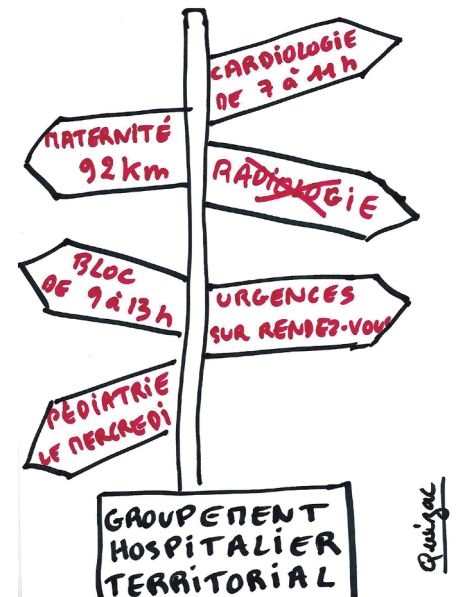 CARDIOLOGIE
DE 7 à 11h
MATERNITÉ
92 km
RADIOLOGIE
BLOC
DE 9 à 13h
URGENCES
SUR RENDEZ-VOUS
PÉDIATRIE
LE MERCREDI
GROUPEMENT
HOSPITALIER
TERRITORIAL
Quizac